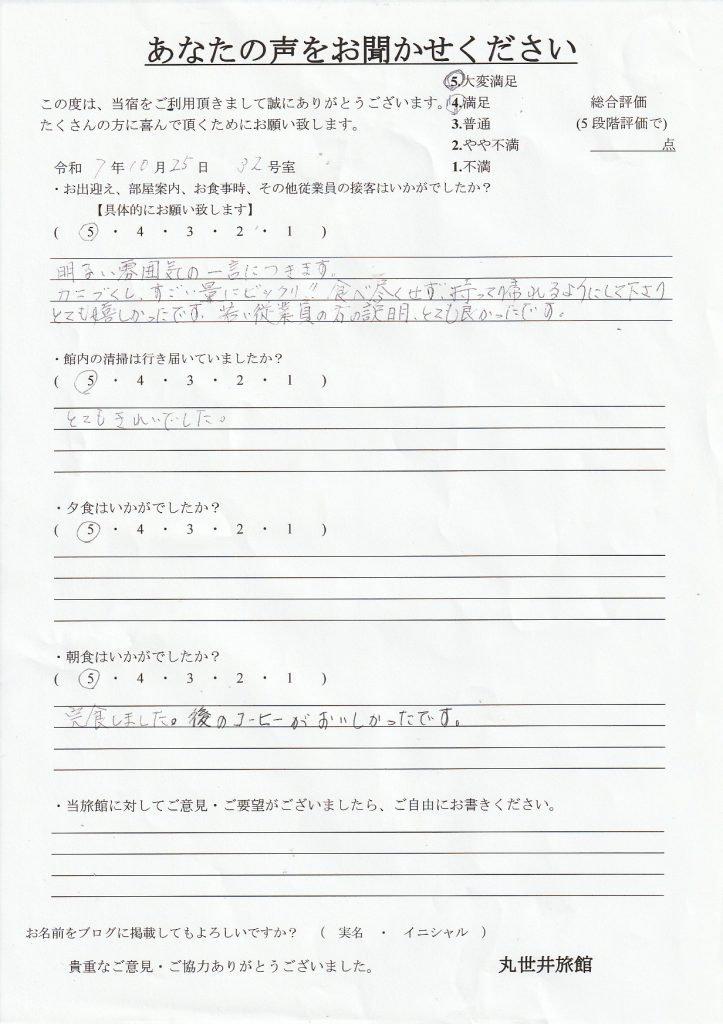 あなたの声をお聞かせください
この度は、当宿をご利用頂きまして誠にありがとうございます。
たくさんの方に喜んで頂くためにお願い致します。
5.大変満足
4.満足
3.普通
2.やや不満
1.不満
総合評価
(5段階評価で)
点
令和 7年10月25日 32号室
・お出迎え、部屋案内、お食事時、その他従業員の接客はいかがでしたか？
【具体的にお願い致します】
( 5 ・ 4 ・ 3 ・ 2 ・ 1 )
明るい雰囲気の一言につきます。
カニづくし、すごい量にビックリ!! 食べ尽くせず、持って帰れるようにして下さり
とても嬉しかったです。若い従業員の方の説明、とても良かったです。
・館内の清掃は行き届いていましたか？
( 5 ・ 4 ・ 3 ・ 2 ・ 1 )
とてもきれいでした。
・夕食はいかがでしたか？
( 5 ・ 4 ・ 3 ・ 2 ・ 1 )
・朝食はいかがでしたか？
( 5 ・ 4 ・ 3 ・ 2 ・ 1 )
完食しました。後のコーヒーがおいしかったです。
・当旅館に対してご意見・ご要望がございましたら、ご自由にお書きください。
お名前をブログに掲載してもよろしいですか？ ( 実名 ・ イニシャル )
貴重なご意見・ご協力ありがとうございました。
丸世井旅館